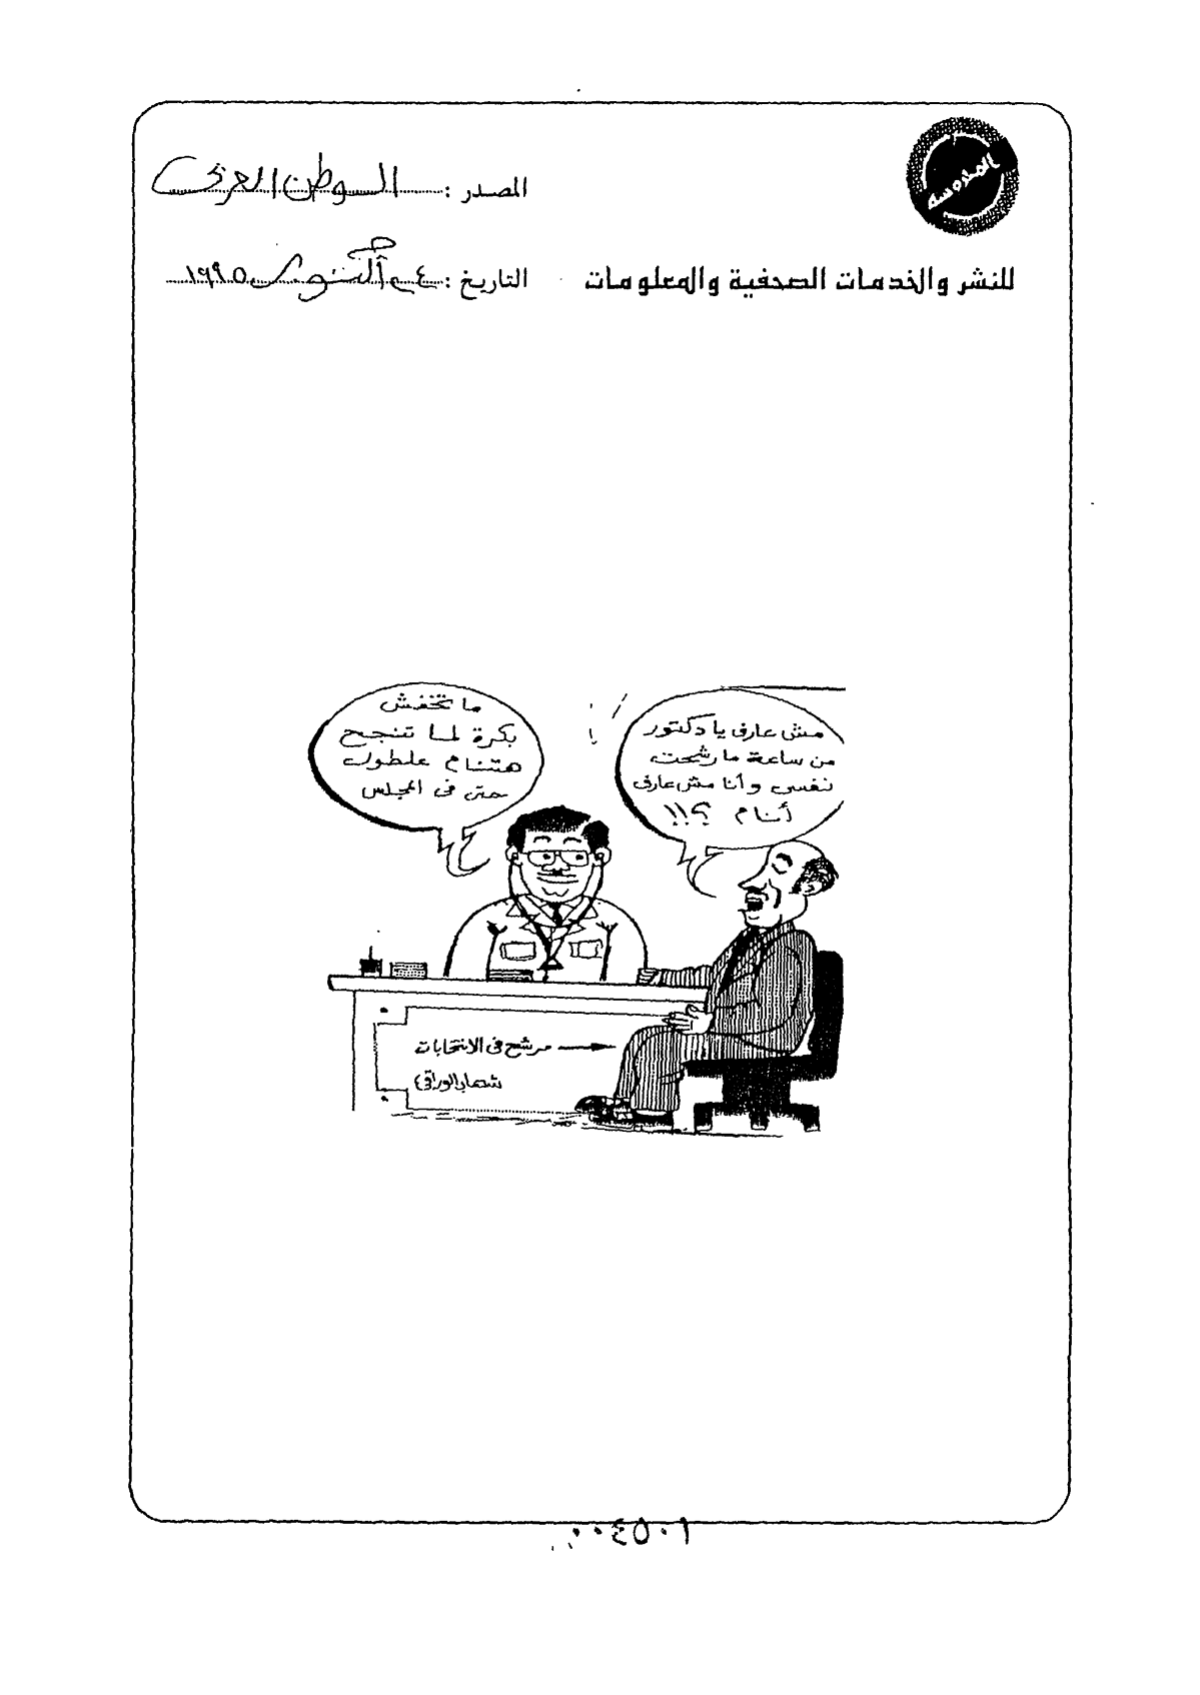 المدوسة
المصدر : الوطن العربى
للنشر والخدمات الصحفية والمعلومات
التاريخ : أكتوبر ١٩٩٥
مش عارف يا دكتور
من ساعة ما رشحت
نفسى وأنا مش عارف
أنام ؟!!
ما تخفش
بكرة لما تنجح
هتنام علطول
حتى فى المجلس
مرشح فى الانتخابات